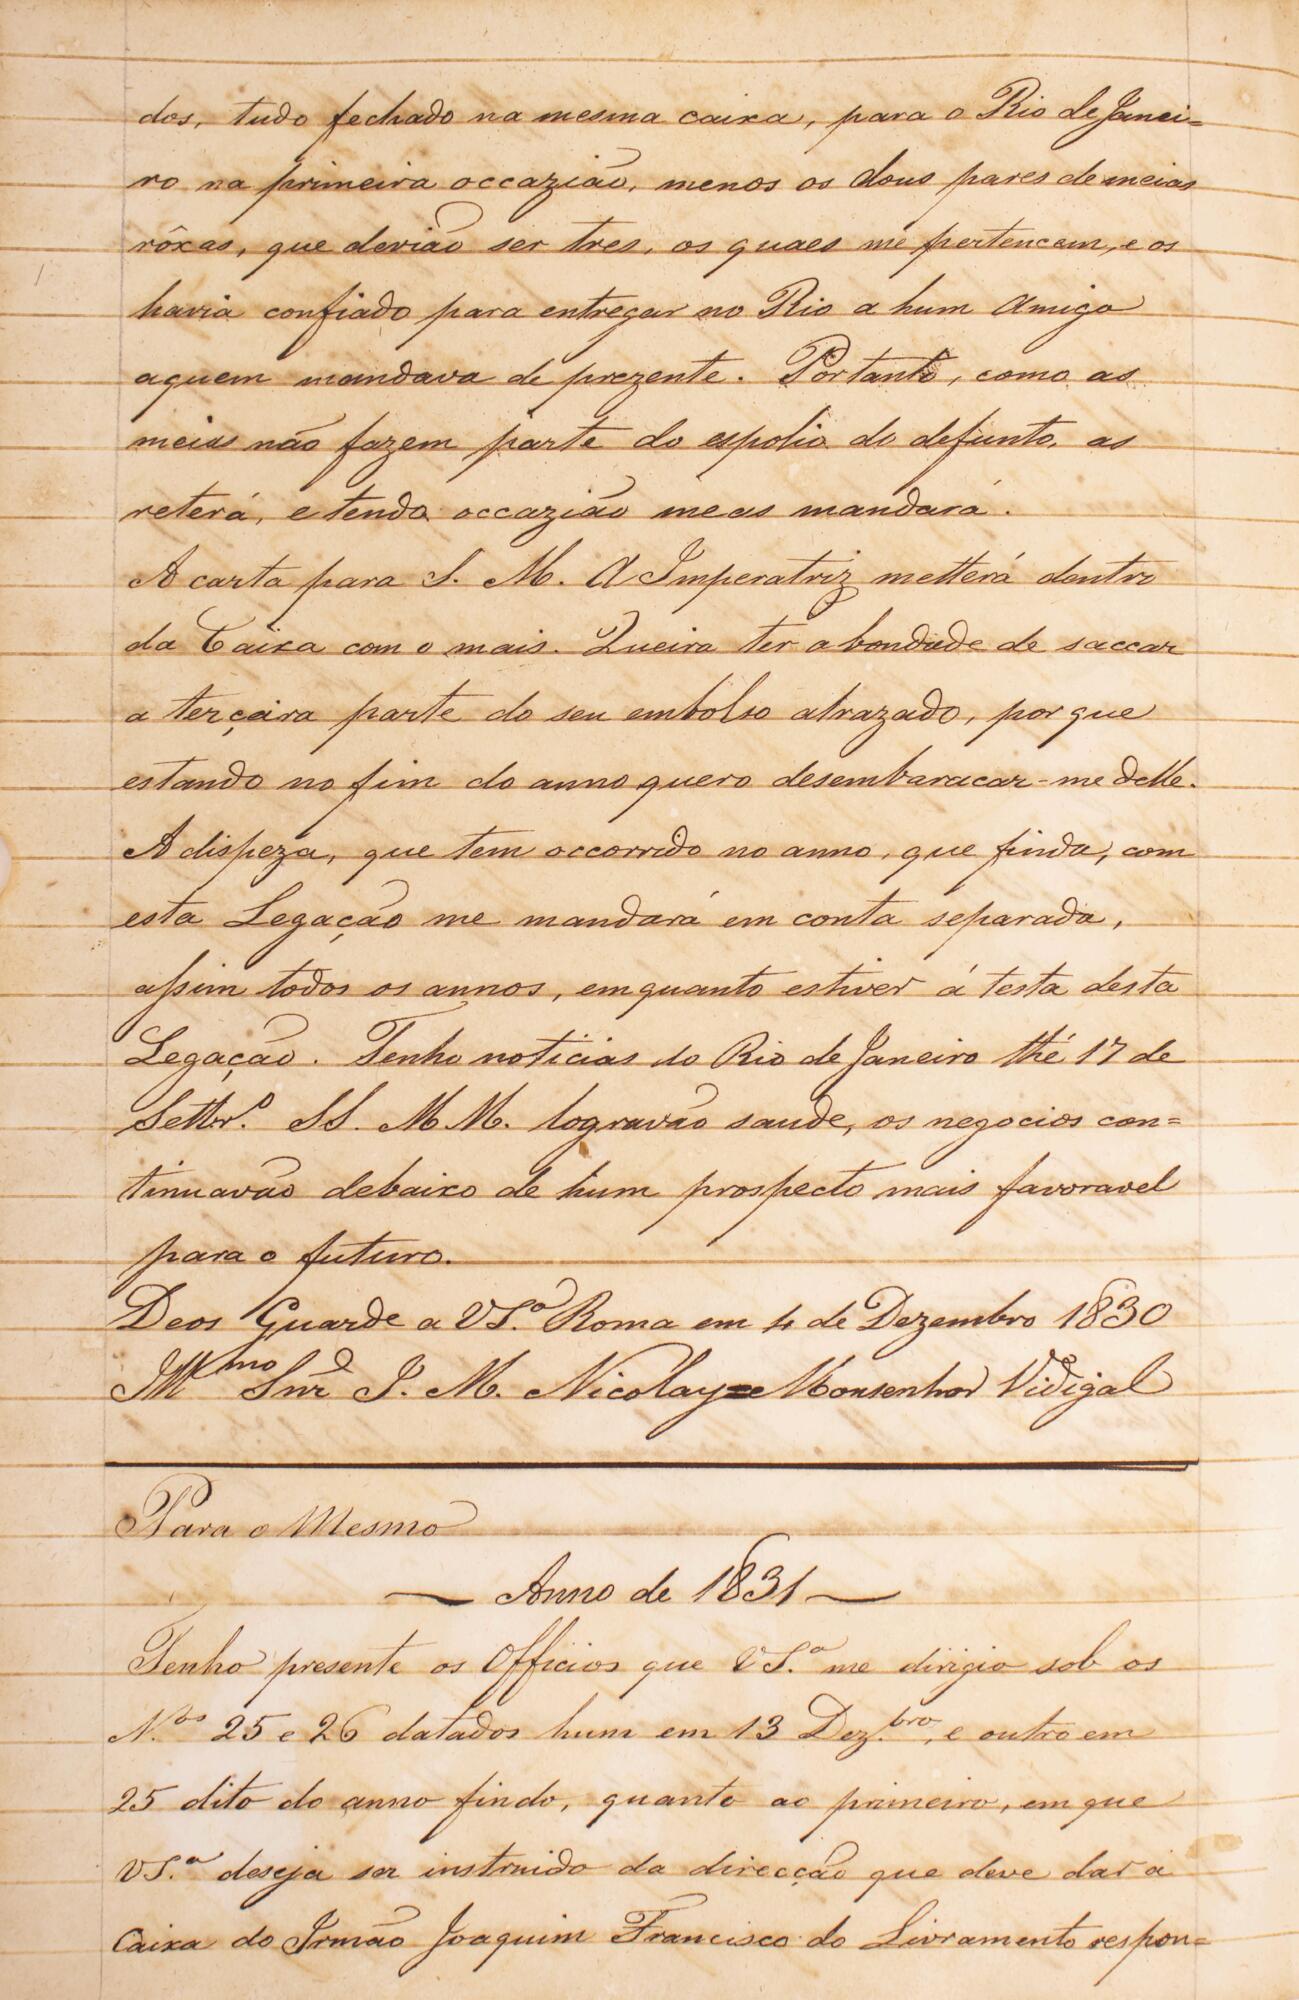 dos, tudo fechado na mesma caixa, para o Rio de Janei=
ro na primeira occazião, menos os dous pares de meias
rôxas, que devião ser tres, os quaes me pertencem, e os
havia confiado para entregar no Rio a hum Amigo
aquem mandava de prezente. Portanto, como as
meias não fazem parte do espolio do defunto, as
reterá, e tendo occazião meas mandará.
A carta para S. M. A Imperatriz metterá dentro
da Caixa com o mais. Queira ter a bondade de saccar
a terçeira parte do seu embolso atrazado, por que
estando no fim do anno quero desembaracar-me delle.
A dispeza, que tem occorrido no anno, que finda, com
esta Legação me mandará em conta separada,
assim todos os annos, emquanto estiver á testa desta
Legação. Tenho noticias do Rio de Janeiro thé 17 de
Settbr.º SS. M M. logravão saude, os negocios con=
tinuavão debaixo de hum prospecto mais favoravel
para o futuro.
Deos Guarde a VS.ª Roma em 4 de Dezembro 1830
Illmo Snr J. M. Nicolay = Monsenhor Vidigal
Para o Mesmo
Anno de 1831
Tenho presente os Officios que VS.ª me dirigio sob os
N.os 25 e 26 datados hum em 13 Dez.bro, e outro em
25 dito do anno findo, quanto ao primeiro, em que
VS.ª deseja ser instruido da direcção que deve dar a
Caixa do Irmão Joaquim Francisco do Livramento respon=